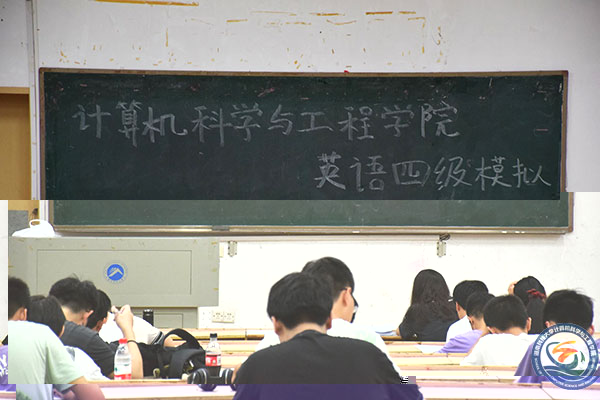 计算机科学与工程学院
英语四级模拟